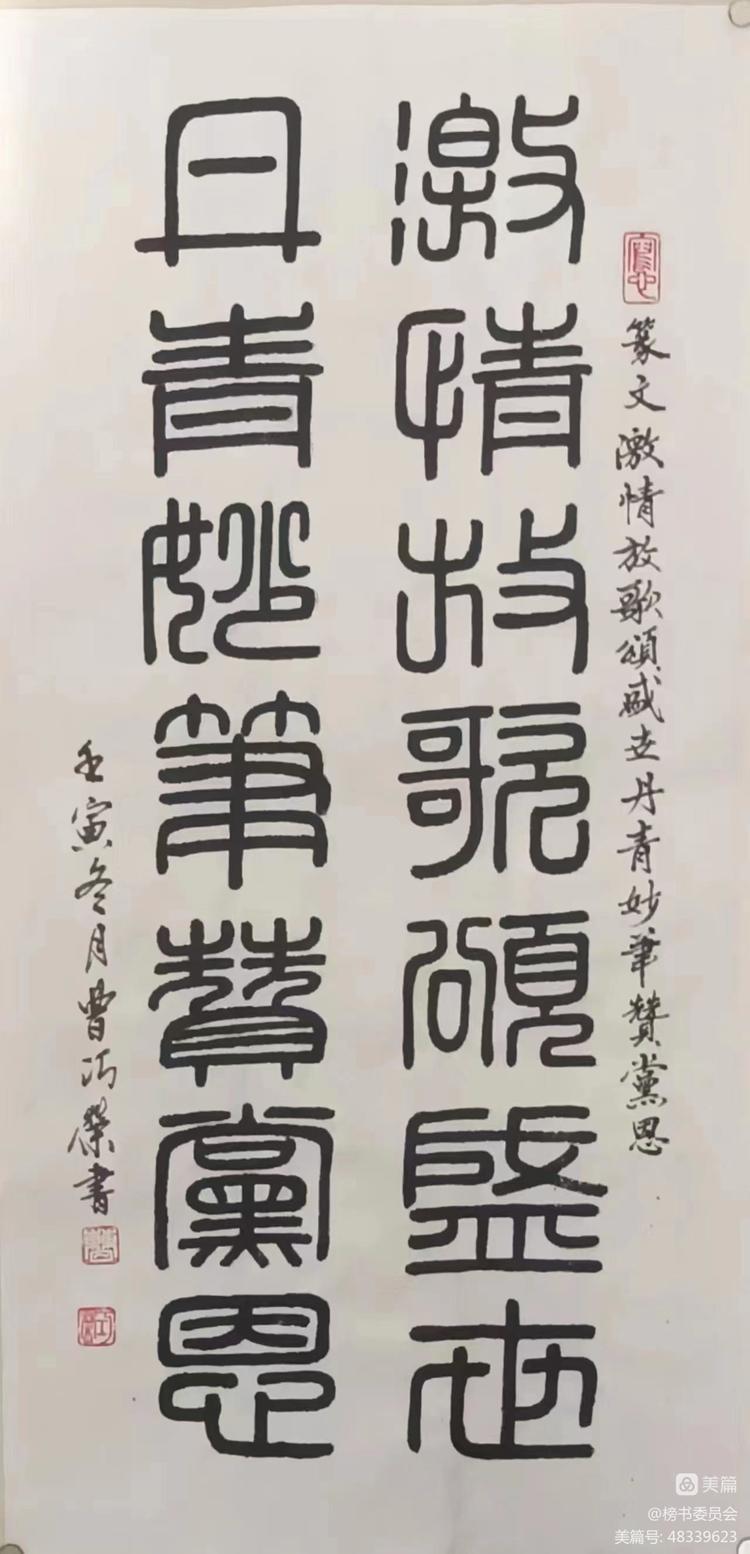 篆文激情放歌頌盛世丹青妙筆赞黨恩
激情放歌頌盛世
丹青妙筆赞黨恩
壬寅冬月曹巧傑書
美篇
@榜书委员会
美篇号: 48339623